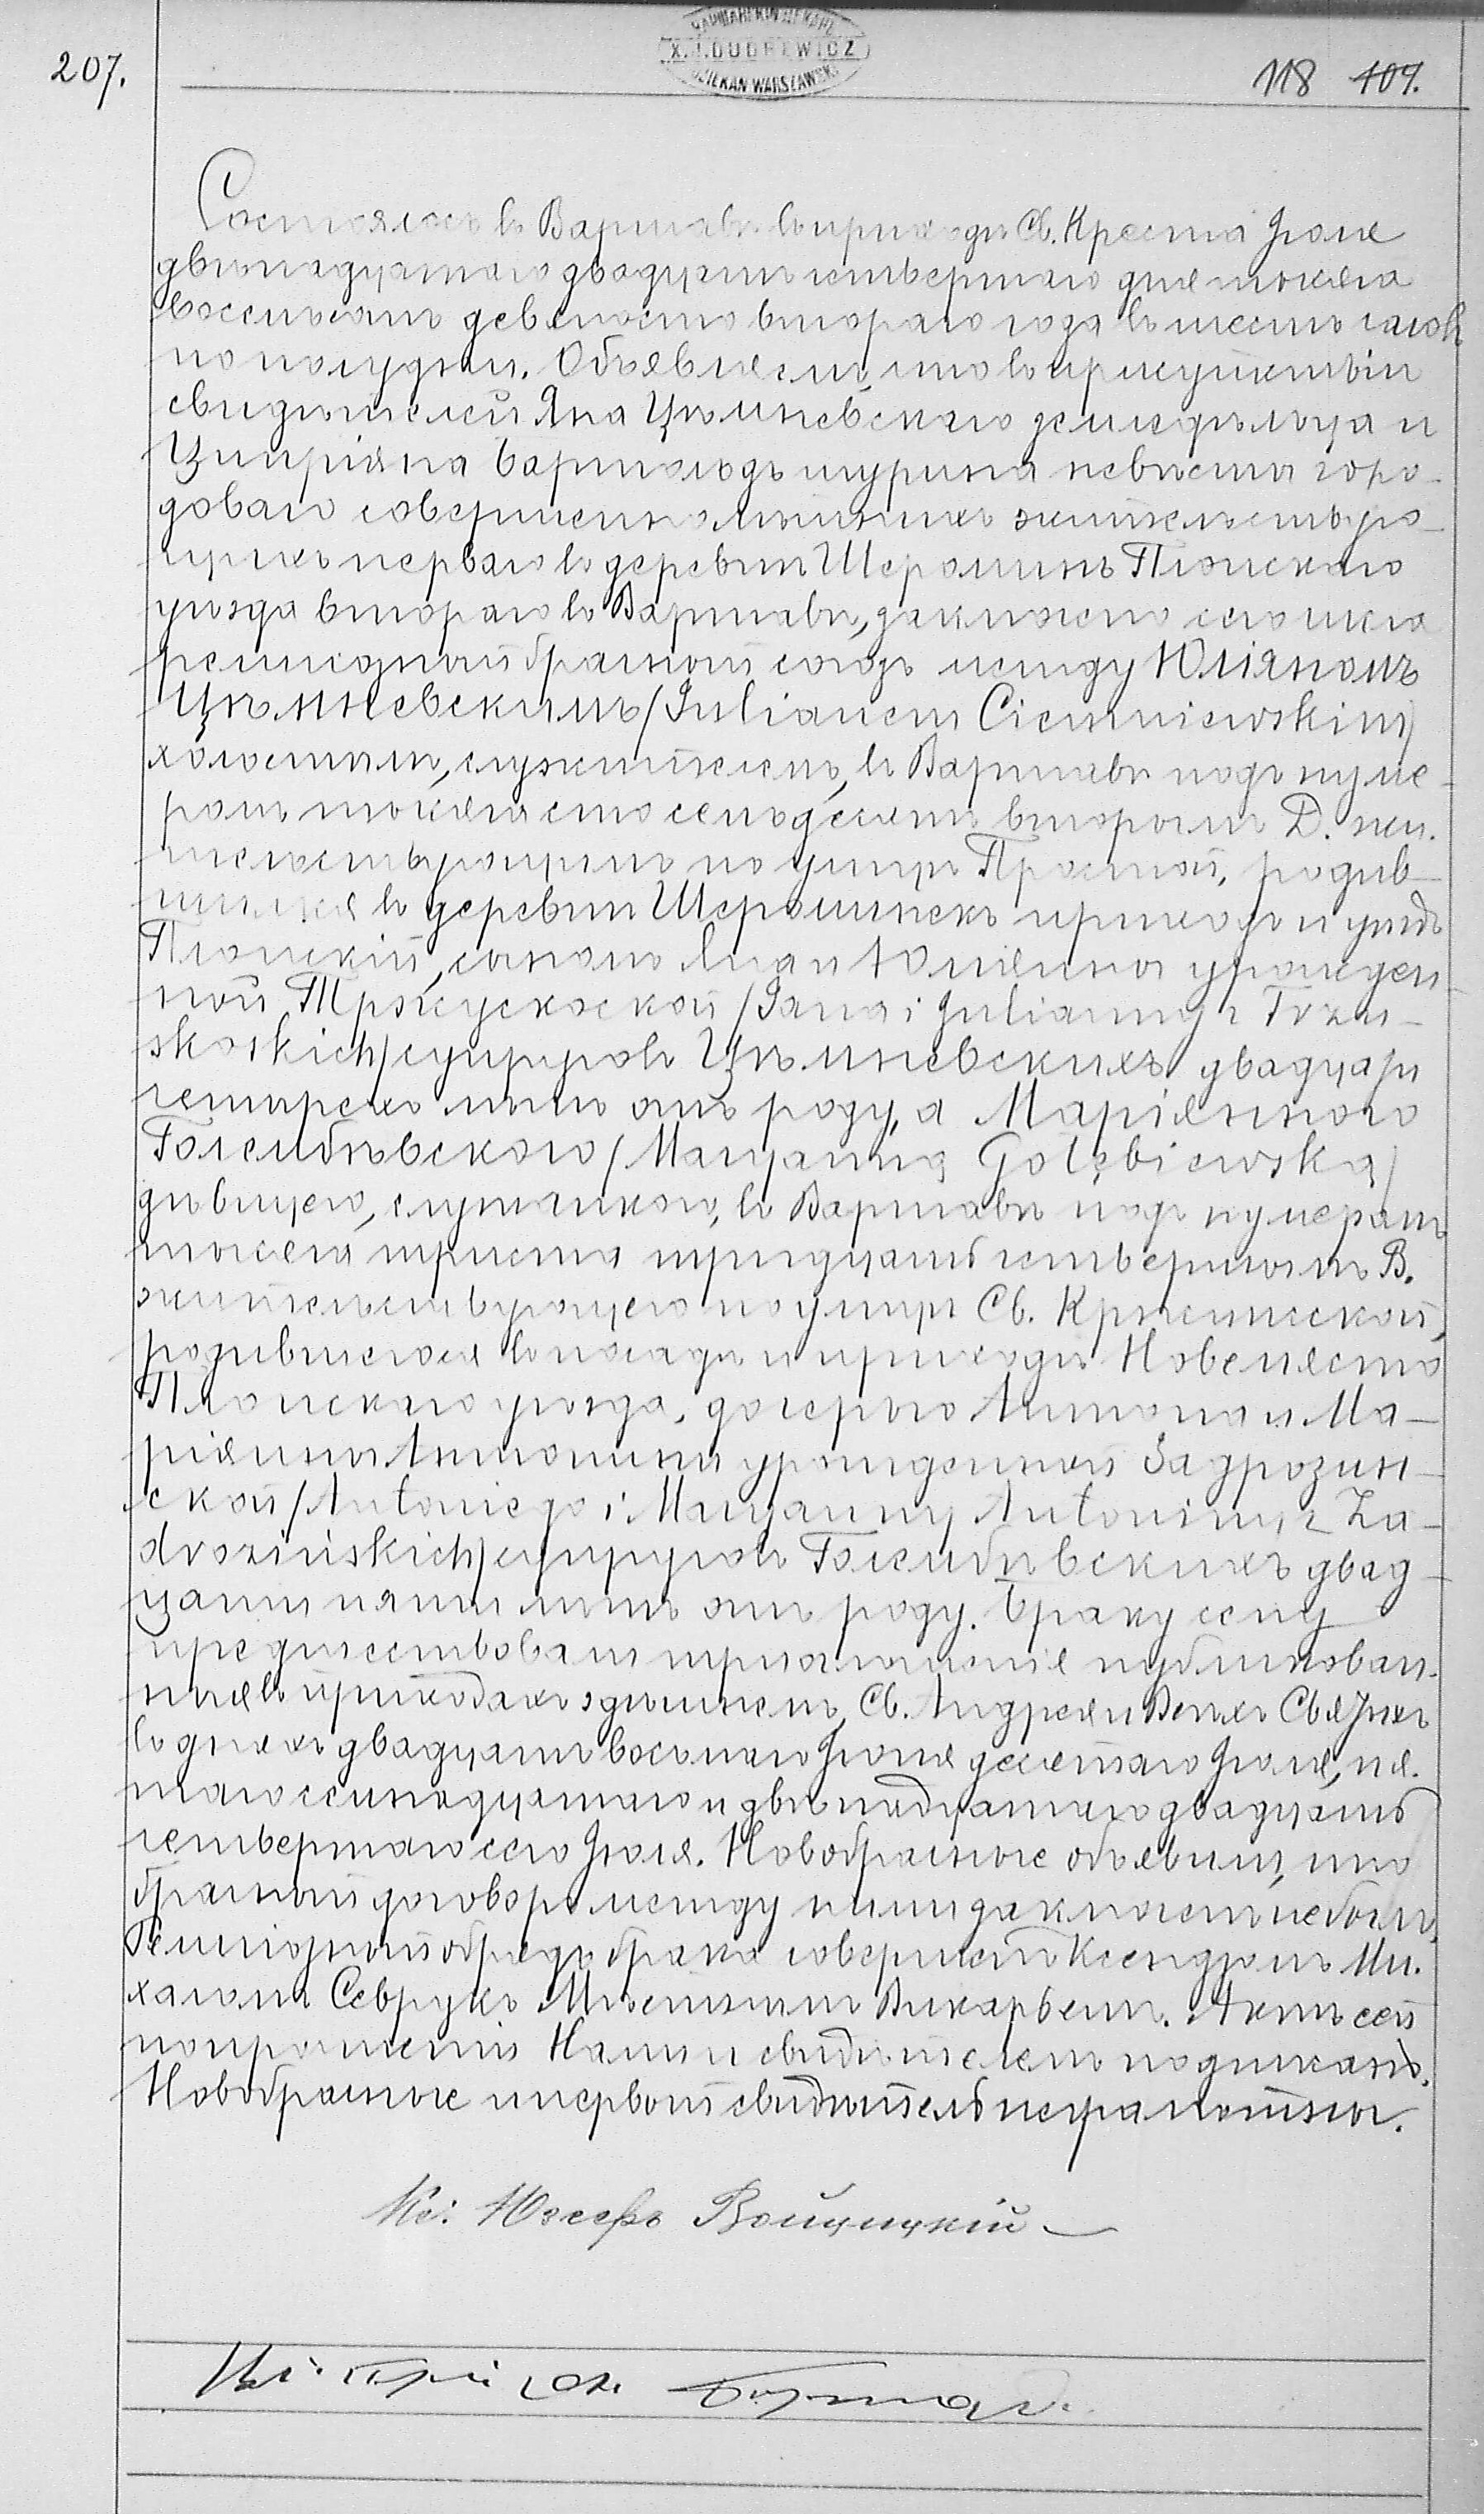 207.
X. J. DUDREWICZ
DZIEKAN WARSZAWSKI
118 109.
Состоялось въ Варшавѣ въ приходѣ Св. Креста Іюля
двѣнадцатаго двадцать четвертаго дня тысяча
восемьсотъ девяносто втораго года въ шесть часовъ
по полудни. Объявляемъ, что въ присутствіи
свидѣтелей Яна Цѣмневскаго земледѣльца и
Ципріяна Бартольдъ шурина невѣсты горо-
доваго совершеннолѣтнихъ жительствую-
щихъ перваго въ деревнѣ Шероминъ Плонскаго
уѣзда втораго въ Варшавѣ, заключенъ сего числа
религіозный брачный союзъ между Юліяномъ
Цѣмневскимъ /Julianem Ciemniewskim/
холостымъ, служителемъ, въ Варшавѣ подъ нуме-
ромъ тысяча сто семьдесятъ вторымъ Д. жи-
тельствующимъ по улицѣ Простой, родив-
шимся въ деревнѣ Шероминекъ приходѣ и уѣздѣ
Плонскій, сыномъ Яна и Юліянны урожден-
ной Тржцускоской /Jana i Julianny z Trzcu-
skoskich/ супруговъ Цѣмневскихъ двадцати
четырехъ лѣтъ отъ роду, а Маріянною
Голембѣвскою /Maryanną Gołębiewską/
дѣвицею, служанкою, въ Варшавѣ подъ нумеромъ
тысяча триста тридцать четвертымъ В.
жительствующею по улицѣ Св. Крыжиской,
родившеюся въ посадѣ и приходѣ Новемясто
Плонскаго уѣзда, дочерью Антона и Ма-
ріянны Антонины урожденной Задрозин-
ской /Antoniego i Maryanny Antoniny z Za-
drozińskich/ супруговъ Голембѣвскихъ двад-
цати пяти лѣтъ отъ роду. Браку сему
предшествовали три оглашенія публикован-
ныя въ приходахъ здѣшнемъ, Св. Андрея и Всѣхъ Святыхъ
въ дняхъ двадцать восьмаго Іюня десятаго Іюля, пя-
таго семнадцатаго и двѣнадцатаго двадцать
четвертаго сего Іюля. Новобрачные объявили, что
брачный договоръ между ними заключенъ небылъ.
Религіозный обрядъ брака совершенъ Ксендзомъ Ми-
халомъ Севрукъ Мѣстнымъ Викаріемъ. Актъ сей
по прочтеніи Нами и свидѣтелемъ подписанъ.
Новобрачные и первый свидѣтель неграмотны.
Кс: Юзефъ Войцицкій